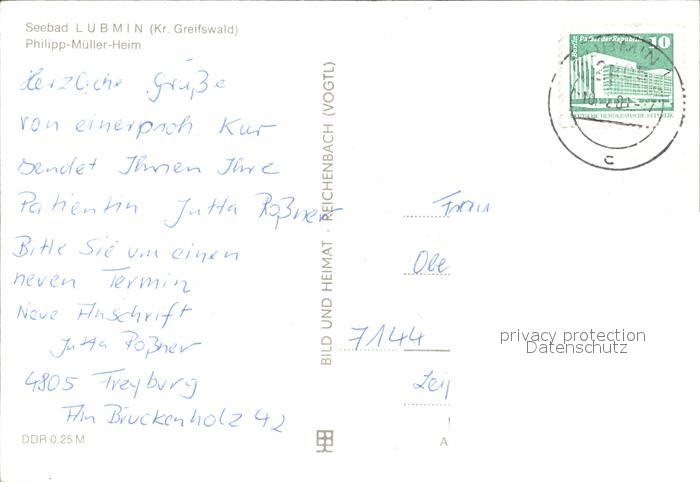 Seebad LUBMIN (Kr. Greifswald)
Philipp-Müller-Heim
Herzliche Grüße
von einer proph. Kur
sendet Ihnen Ihre
Patientin Jutta Roßner
Bitte Sie um einen
neuen Termin
Neue Anschrift
Jutta Roßner
4805 Freyburg
Am Bruckenholz 42
DDR 0,25 M
BILD UND HEIMAT · REICHENBACH (VOGTL)
Berlin Palast der Republik
10
DEUTSCHE DEMOKRATISCHE REPUBLIK
LUBMIN
c
Frau
Obe
7144
Leip
A
privacy protection
Datenschutz